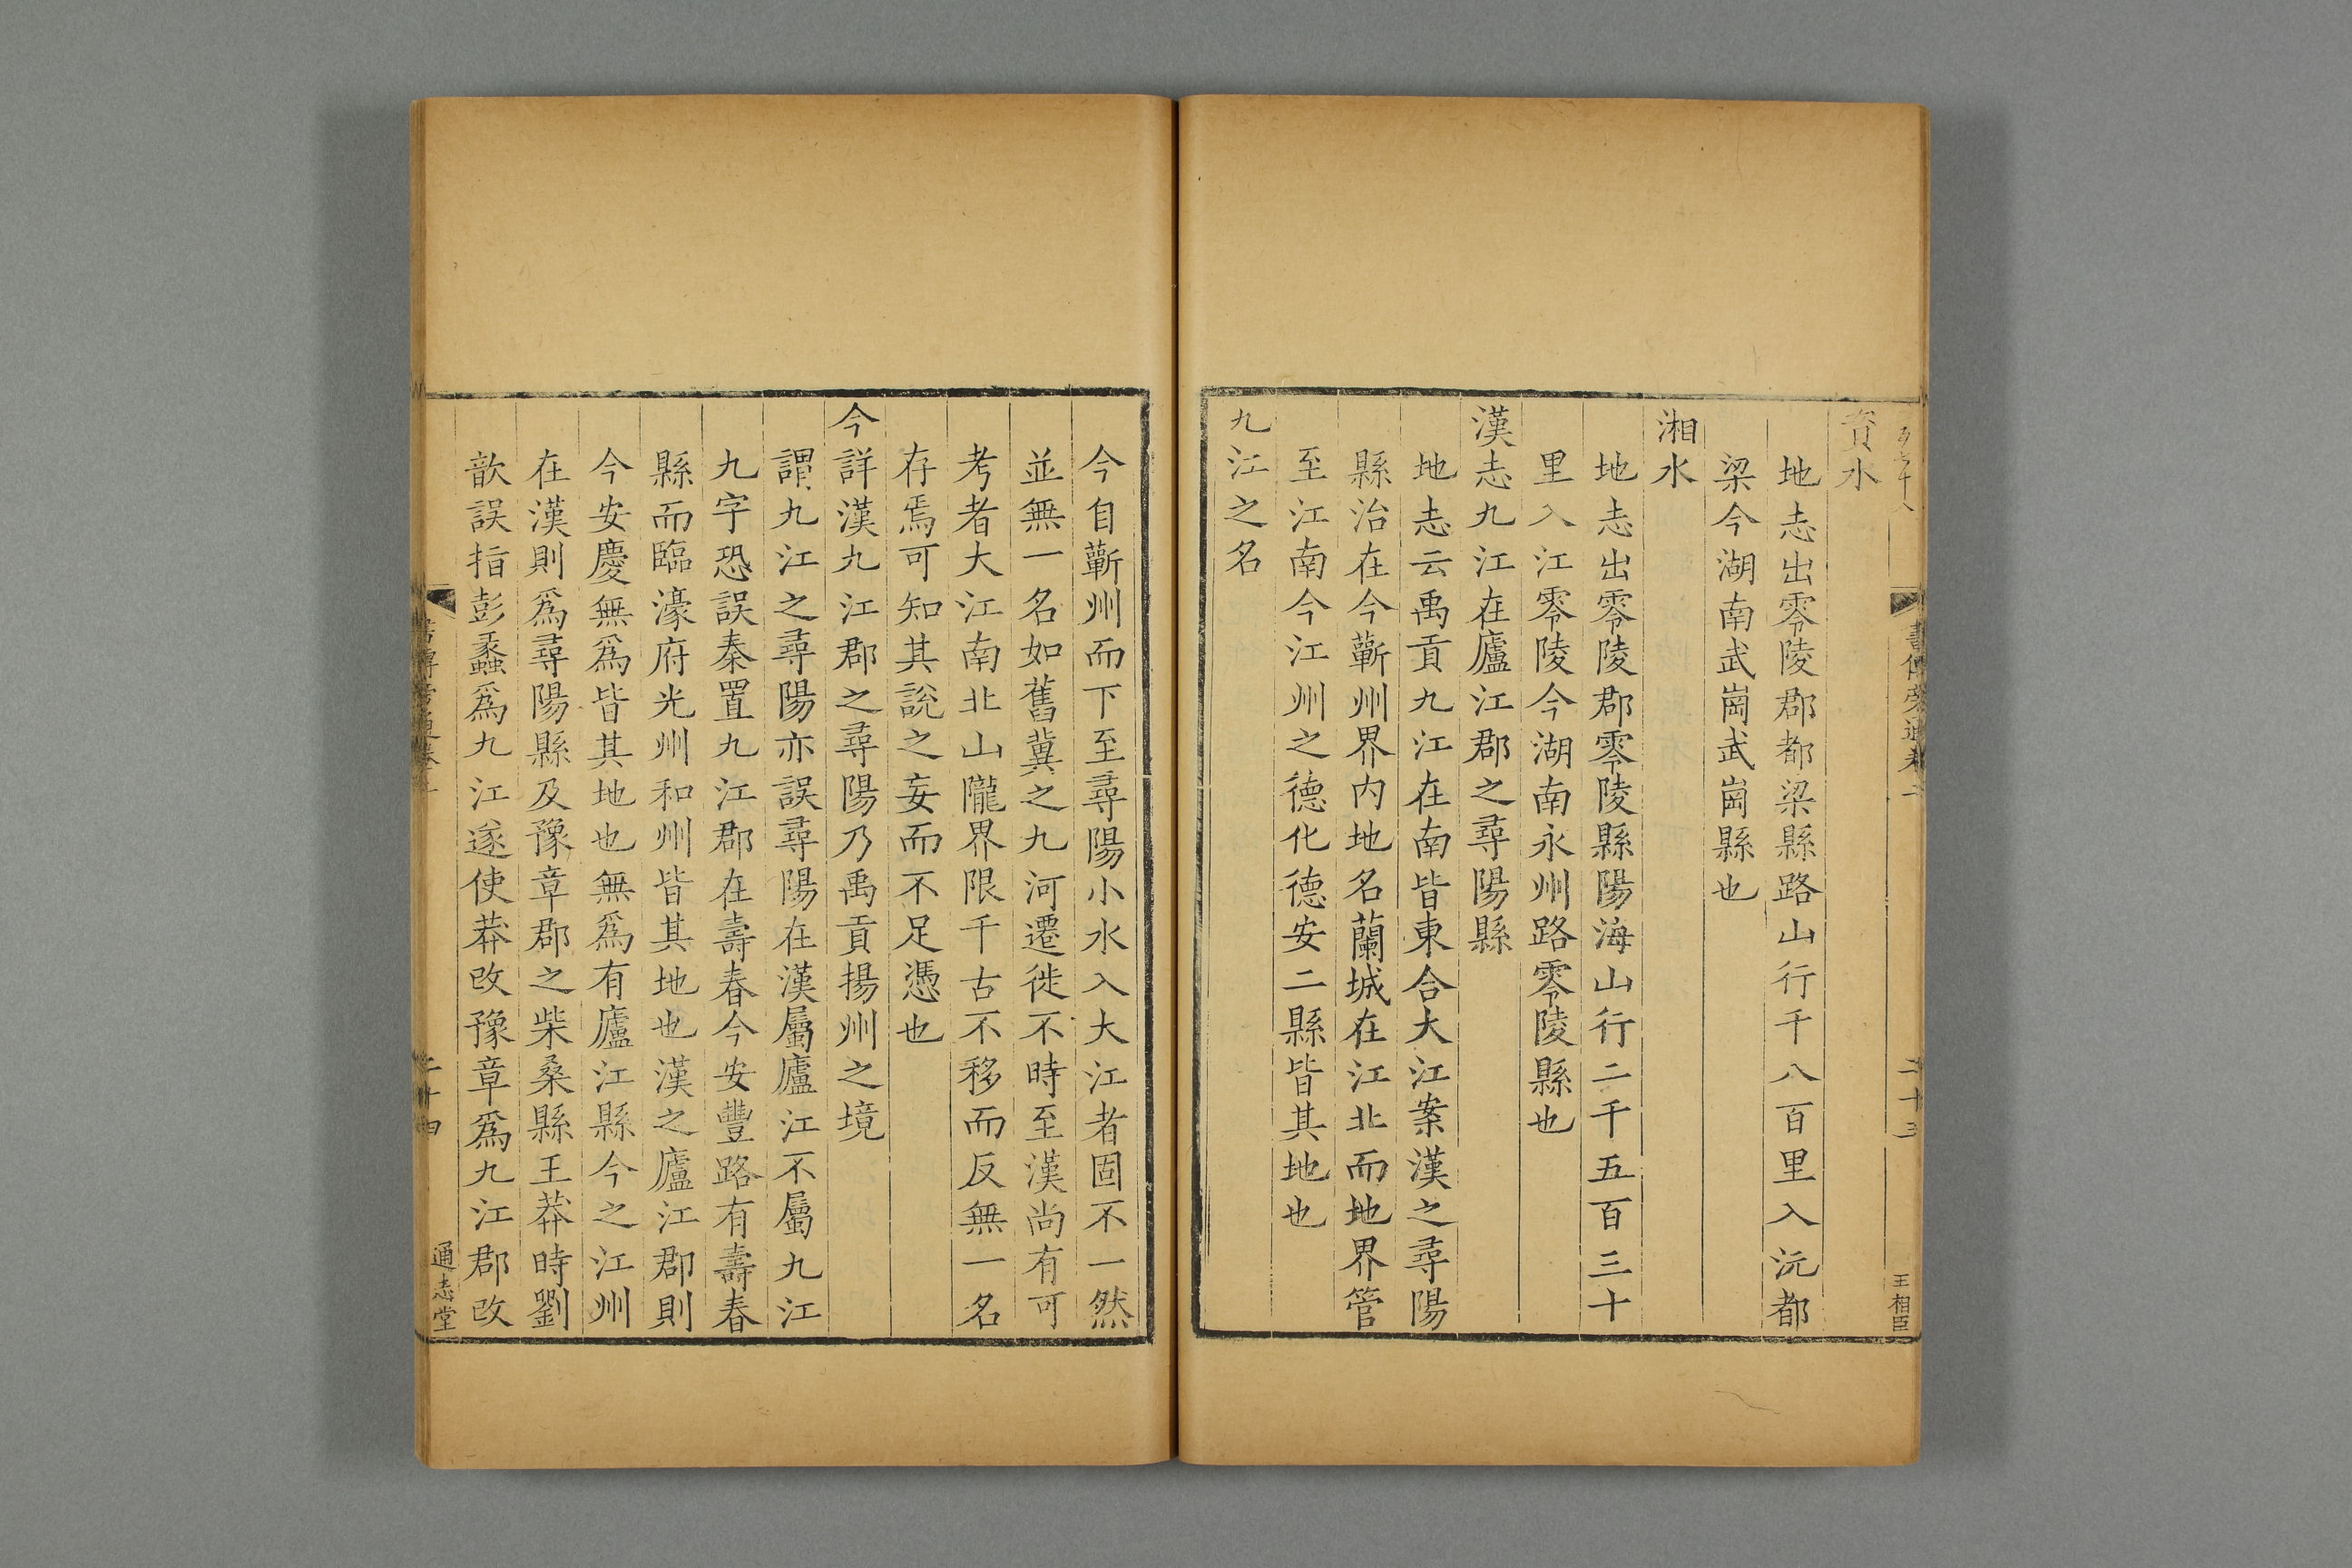 資水
地志出零陵郡都梁縣路山行千八百里入沅都
梁今湖南武崗武崗縣也
湘水
地志出零陵郡零陵縣陽海山行二千五百三十
里入江零陵今湖南永州路零陵縣也
漢志九江在廬江郡之尋陽縣
地志云禹貢九江在南皆東合大江案漢之尋陽
縣治在今蘄州界內地名蘭城在江北而地界管
至江南今江州之德化德安二縣皆其地也
九江之名
書傳旁通卷二
二十三
王相臣
今自蘄州而下至尋陽小水入大江者固不一然
並無一名如舊冀之九河遷徙不時至漢尚有可
考者大江南北山隴界限千古不移而反無一名
存焉可知其說之妄而不足憑也
今詳漢九江郡之尋陽乃禹貢揚州之境
謂九江之尋陽亦誤尋陽在漢屬廬江不屬九江
九字恐誤秦置九江郡在壽春今安豐路有壽春
縣而臨濠府光州和州皆其地也漢之廬江郡則
今安慶無爲皆其地也無爲有廬江縣今之江州
在漢則爲尋陽縣及豫章郡之柴桑縣王莽時劉
歆誤指彭蠡爲九江遂使莽改豫章爲九江郡改
二十四
通志堂